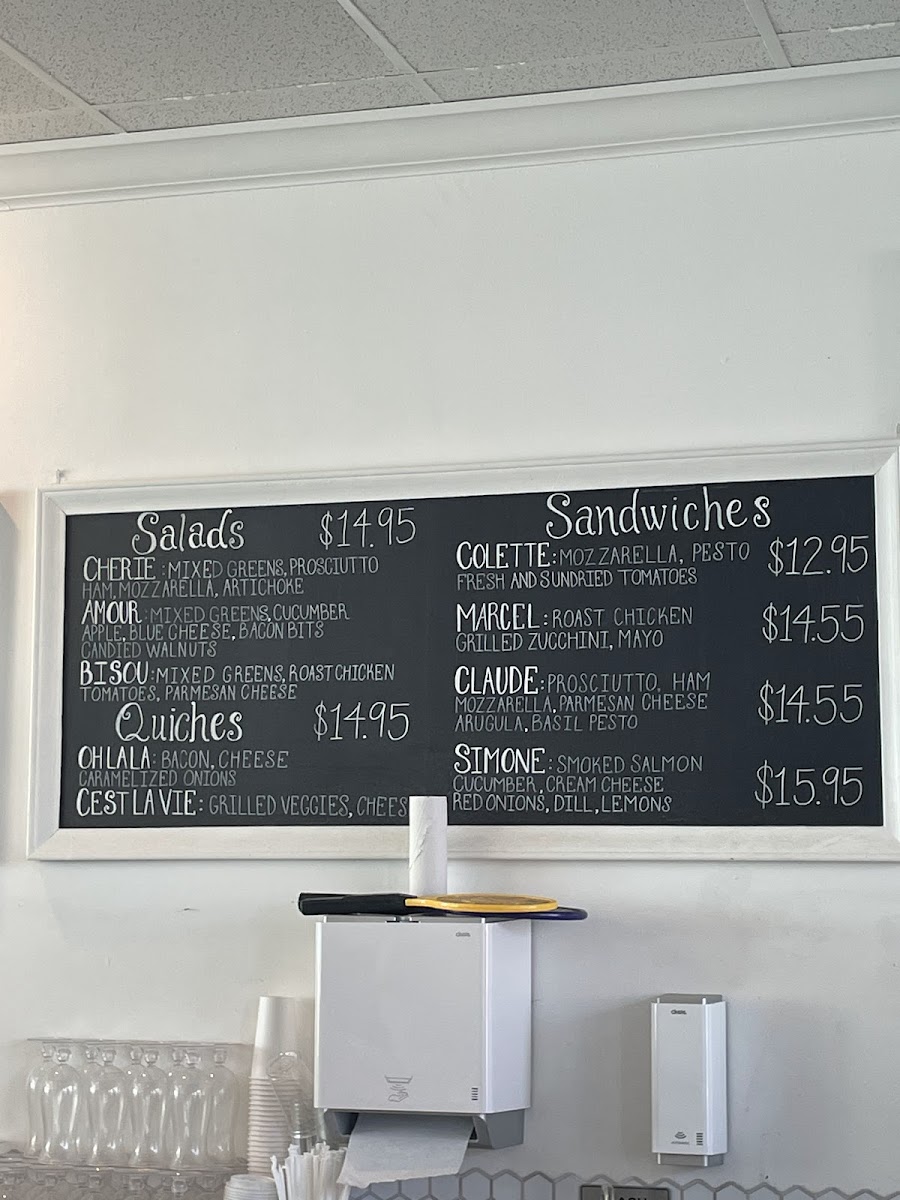 Salads $14.95
CHERIE: MIXED GREENS, PROSCIUTTO
HAM, MOZZARELLA, ARTICHOKE
AMOUR: MIXED GREENS, CUCUMBER
APPLE, BLUE CHEESE, BACON BITS
CANDIED WALNUTS
BISOU: MIXED GREENS, ROAST CHICKEN
TOMATOES, PARMESAN CHEESE
Quiches $14.95
OH LALA: BACON, CHEESE
CARAMELIZED ONIONS
CEST LA VIE: GRILLED VEGGIES, CHEES
Sandwiches
COLETTE: MOZZARELLA, PESTO $12.95
FRESH AND SUNDRIED TOMATOES
MARCEL: ROAST CHICKEN $14.55
GRILLED ZUCCHINI, MAYO
CLAUDE: PROSCIUTTO, HAM
MOZZARELLA, PARMESAN CHEESE $14.55
ARUGULA, BASIL PESTO
SIMONE: SMOKED SALMON
CUCUMBER, CREAM CHEESE $15.95
RED ONIONS, DILL, LEMONS